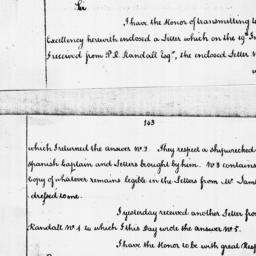 Sir
I have the Honor of transmitting to
Excellency herewith enclosed a Letter which on the 19th
I received from P. R. Randall Esqr, the enclosed Letter N
163
which I returned the answer No 2. They respect a shipwrecked
Spanish Captain and Letters brought by him. No 3 contains
Copy of whatever remains legible in the Letters from Mr Lamb
dressed to me.
I yesterday received another Letter from
Randall No 4 to which I this day wrote the answer No 5.
I have the Honor to be with great Resp